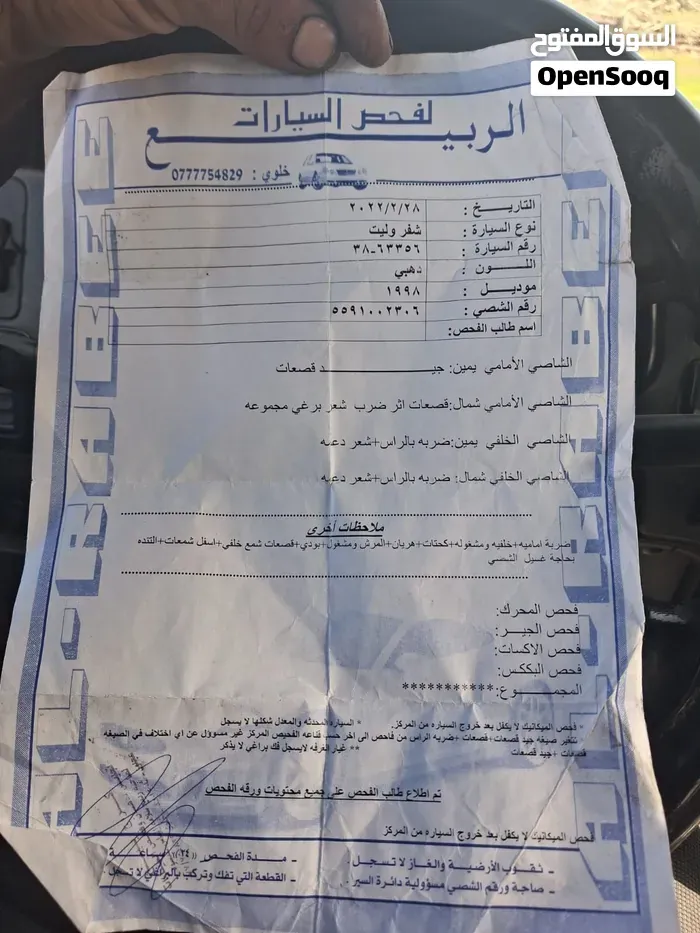 السوق المفتوح
OpenSooq
لفحص السيارات
الربيع
خلوي : 0777754829
التاريخ : ٢٠٢٢/٢/٢٨
نوع السيارة : شفر وليت
رقم السيارة : ٣٨-٦٣٣٥٦
اللون : ذهبي
موديل : ١٩٩٨
رقم الشصي : ٥٥٩١٠٠٢٣٠٦
اسم طالب الفحص:
الشاصي الأمامي يمين: جيد قصعات
الشاصي الأمامي شمال:قصعات اثر ضرب شعر برغي مجموعه
الشاصي الخلفي يمين:ضربه بالراس+شعر دعمه
الشاصي الخلفي شمال: ضربه بالراس+شعر دعمه
ملاحظات أخرى
ضربة اماميه+خلفيه ومشغوله+كحتات+هريان+المرش ومشغول+بودي+قصعات شمع خلفي+اسفل شمعات+التنده
بحاجة غسيل الشصي
فحص المحرك:
فحص الجير:
فحص الاكسات:
فحص البككس:
المجموع:***********
* فحص الميكانيك لا يكفل بعد خروج السياره من المركز. * السياره المحدثه والمعدل شكلها لا يسجل
تتغير صيغه جيد قصعات+قصعات +ضربه الراس من فاحص الى اخر حسب قناعه الفحيص المركز غير مسوؤل عن اي اختلاف في الصيغه
قصعات +جيد قصعات ** غيار الغرفه لايسجل فك براغي لا يذكر
تم اطلاع طالب الفحص على جميع محتويات ورقه الفحص
فحص الميكانيك لا يكفل بعد خروج السياره من المركز
- ثقوب الأرضية والغاز لا تسجل . - مدة الفحص ((٢٤)) ساعة
- صاجة ورقم الشصي مسؤولية دائرة السير . - القطعة التي تفك وتركب بالبراغي لا تسجل .
AL-RABEE
AL-RABEE